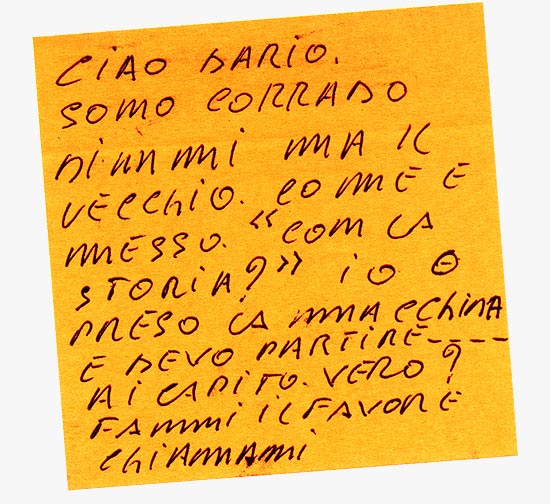 CIAO DARIO.
SONO CORRADO
DIMMI MA IL
VECCHIO. COME E
MESSO. "COM LA
STORIA?" IO O
PRESO LA MACCHINA
E DEVO PARTIRE----
AI CAPITO. VERO?
FAMMI IL FAVORE
CHIAMAMI